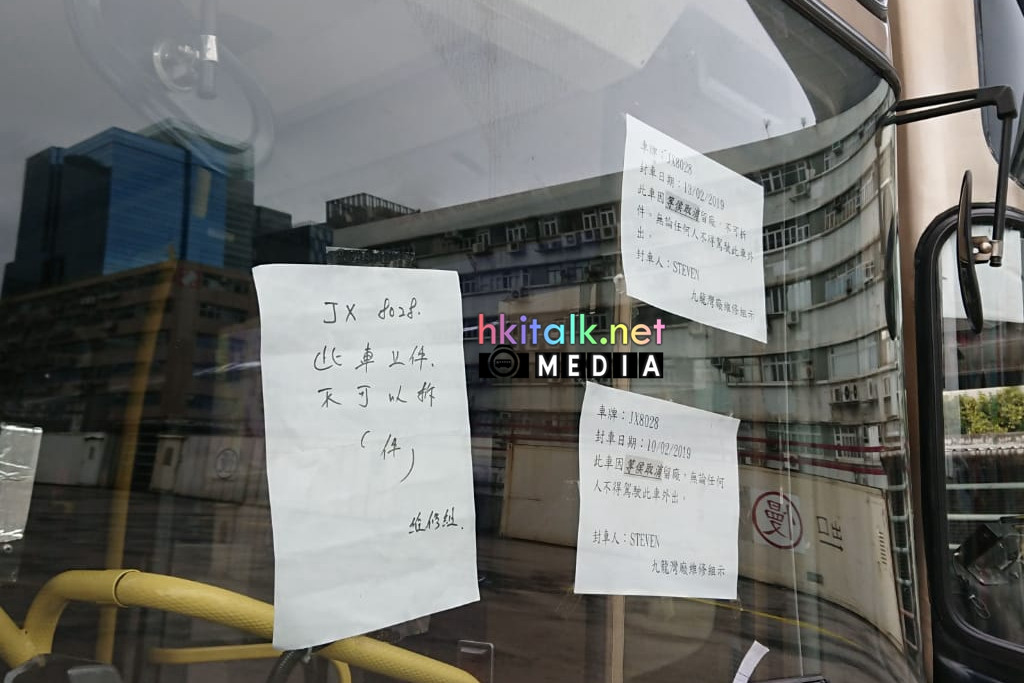 JX 8028.
此車立件.
不可以拆
(件)
維修組.
車牌：JX8028
封車日期：13/02/2019
此車因等候取消留廠，不可拆
件。無論任何人不得駕駛此車外
出。
封車人：STEVEN
九龍灣廠維修組示
hkitalk.net
MEDIA
車牌：JX8028
封車日期：10/02/2019
此車因等侯取消留廠，無論任何
人不得駕駛此車外出。
封車人：STEVEN
九龍灣廠維修組示
慢
出口